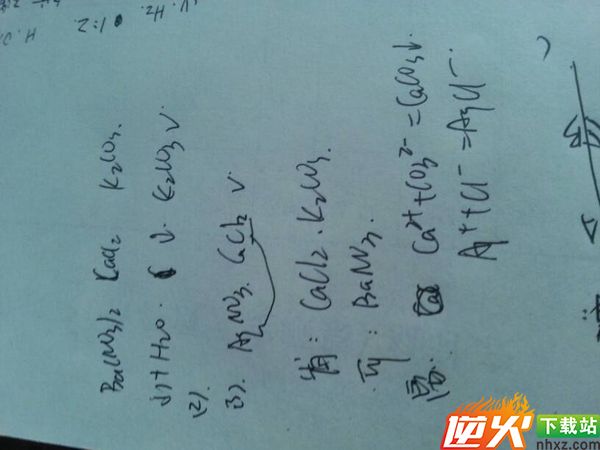 Ba(NO3)2 CaCl2 K2CO3.
(1)+H2O. ↓. K2CO3 √.
(2).
(3). AgNO3. CaCl2 √.
有: CaCl2. K2CO3.
可: BaNO3.
Ca²⁺+CO3²⁻=CaCO3↓.
Ag⁺+Cl⁻=AgCl⁻.
H2.
1:2
逆火 下载站
nhxz.com